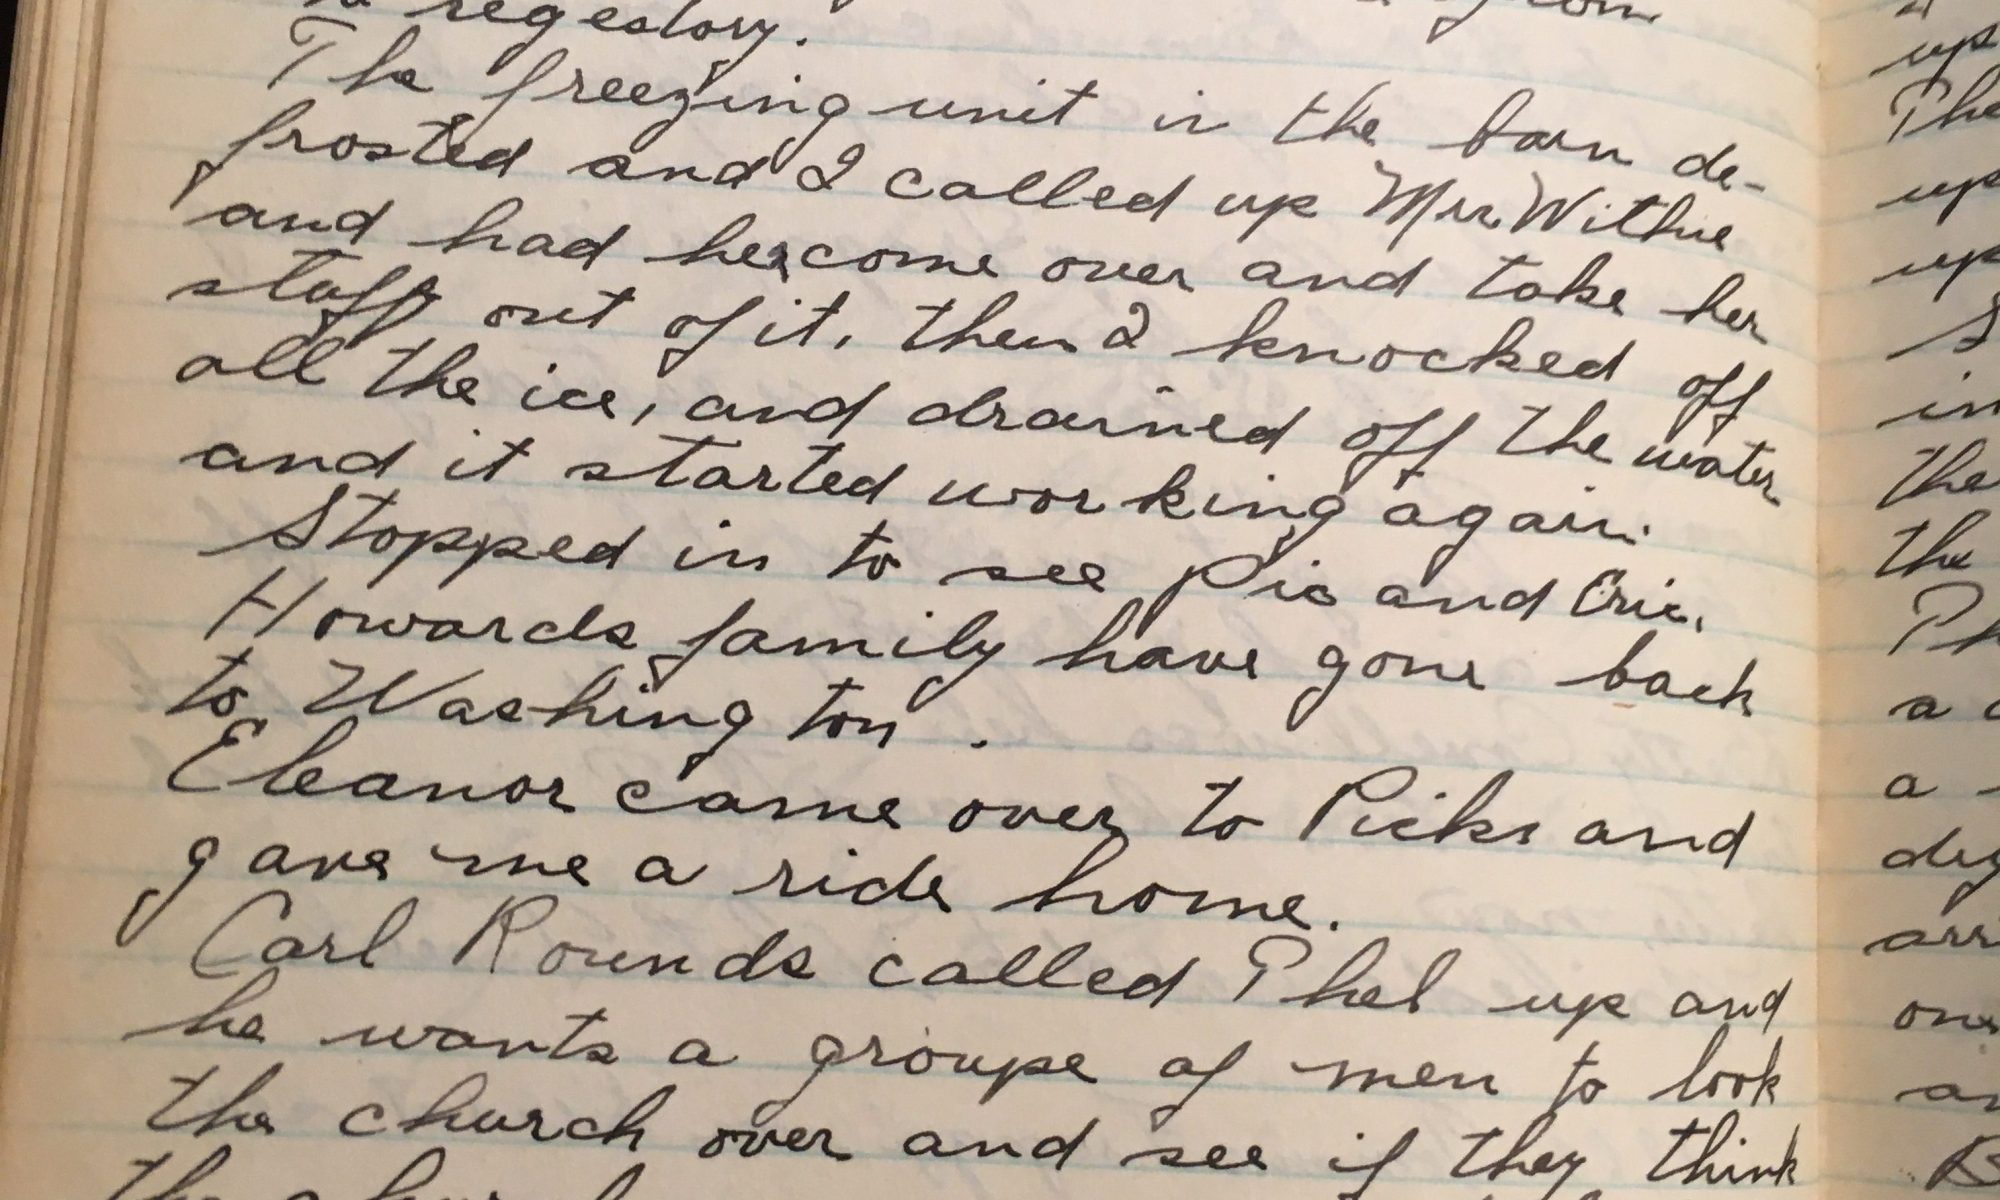 regestory.
The freezing unit in the barn de-
frosted and I called up Mrs. Withie
and had her come over and take her
stuff out of it, then I knocked off
all the ice, and drained off the water
and it started working again.
Stopped in to see Pic and Eric.
Howards family have gone back
to Washington.
Eleanor came over to Picks and
gave me a ride home.
Carl Rounds called Phel up and
he wants a groupe of men to look
the church over and see if they think
up
The
up
up
in
the
the
a
a